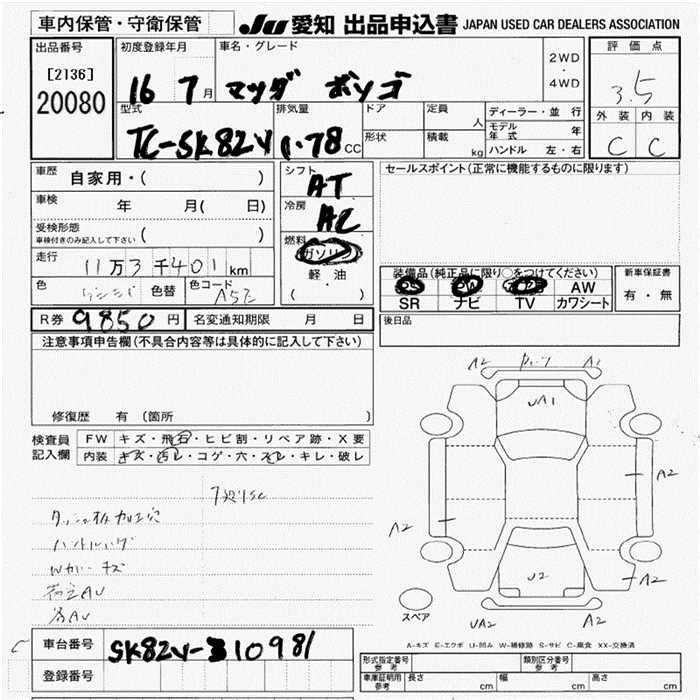 車内保管・守衛保管
JU 愛知 出品申込書 JAPAN USED CAR DEALERS ASSOCIATION
出品番号
[2136]
20080
初度登録年月
16 7月
車名・グレード
マツダ ボンゴ
2WD
・
4WD
評価点
3.5
外装 内装
C C
型式
TC-SK82V
排気量
1.78 CC
ドア
形状
定員
人
積載
kg
ディーラー・並行
モデル年式
年
ハンドル 左・右
車歴
自家用・( )
車検
年 月( 日)
受検形態
車検付きのみ記入して下さい
( )
走行
11万3千401km
色
色替
色コード
A5Z
シフト
AT
冷房
AC
燃料
ガソリン
軽油
( ・ )
セールスポイント(正常に機能するものに限ります)
装備品(純正品に限り○をつけてください)
PS PW AW
SR ナビ TV カワシート
新車保証書
有・無
R券 9850円
名変通知期限 月 日
後日品
注意事項申告欄(不具合内容等は具体的に記入して下さい)
修復歴 有 (箇所 )
検査員
記入欄
FW キズ・飛石・ヒビ割・リペア跡・X要
内装 キズ・汚レ・コゲ・穴・スレ・キレ・破レ
ダッシュ板加工穴
Wカバーキズ
A2 A1
UA1
A2
A2
U2
A2
UA2 A2
スペア
A-キズ E-エクボ U-凹み W-補修跡 S-サビ C-腐食 XX-交換済
車台番号
SK82V-310981
登録番号
形式指定番号
参考
類別区分番号
参考
車庫証明用
参考
長さ cm
幅 cm
高さ cm